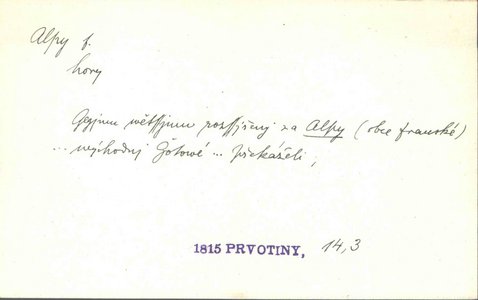 Alpy f.
hory
Gegjmu wětssjmu rozssjřenj za Alpy (obce franské)
... neychodnj Gotowé ... překáželi,
1815 PRVOTINY, 14,3